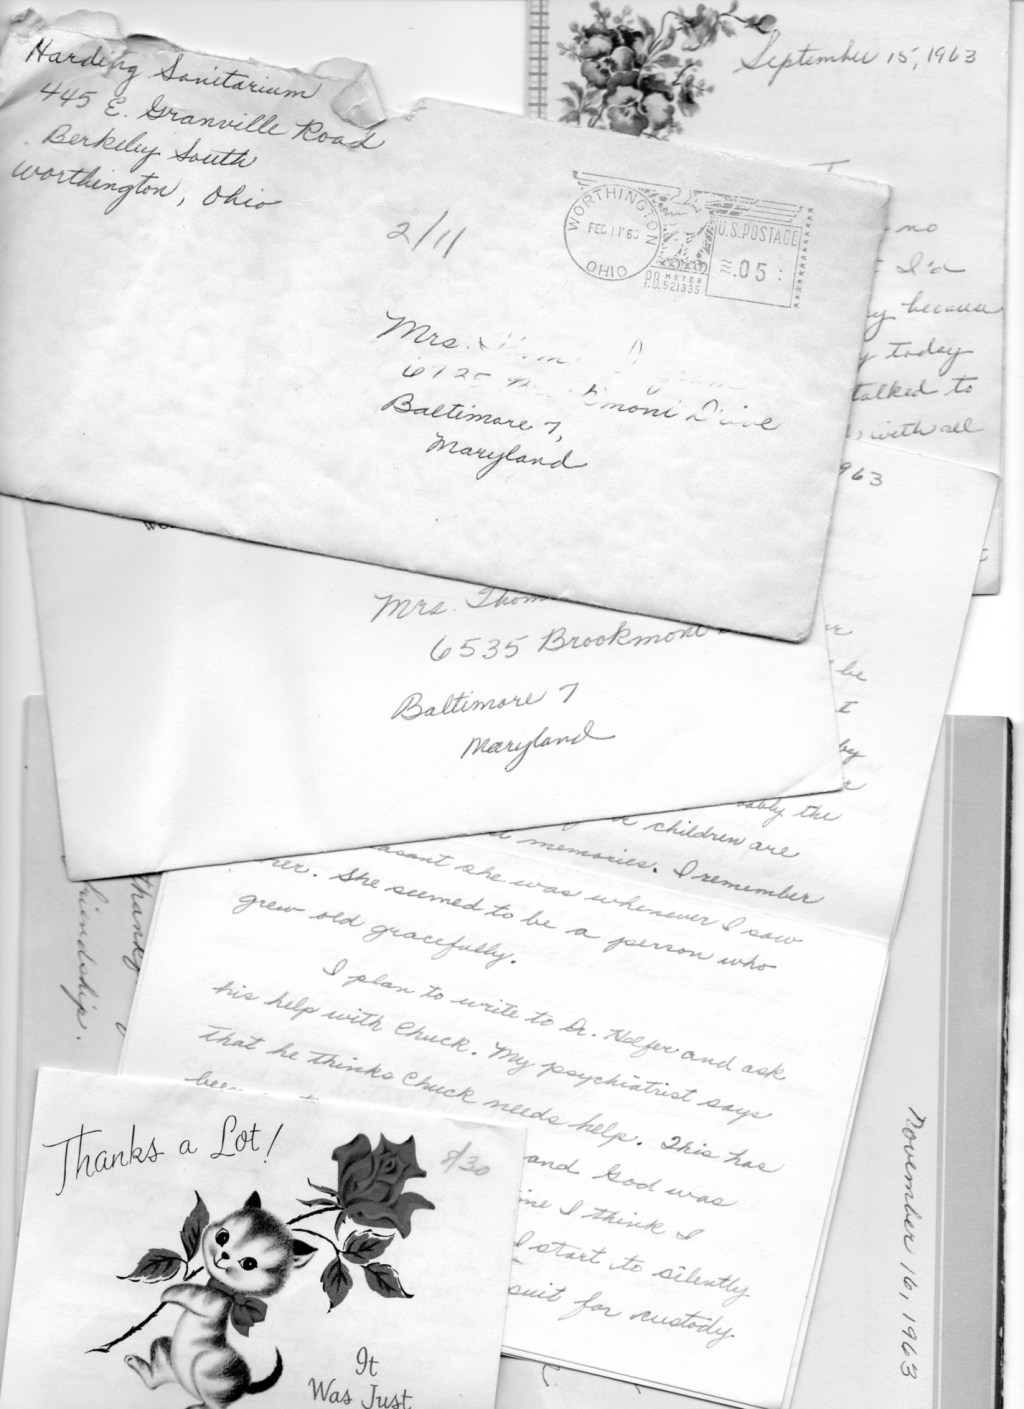 Harding Sanitarium
445 E. Granville Road
Berkeley South
Worthington, Ohio
2/11
WORTHINGTON
FEB 11 '63
OHIO
U.S. POSTAGE
.05
METER
521335
Mrs.
Drive
Baltimore 7,
Maryland
September 15, 1963
no
I'd
because
today
talked to
with all
963
Mrs. Thom
6535 Brookmont
Baltimore 7
Maryland
be
I
by
the
children are
memories. I remember
she was whenever I saw
her. She seemed to be a person who
grew old gracefully.
I plan to write to Dr. and ask
his help with Chuck. My psychiatrist says
that he thinks Chuck needs help. This has
and God was
I think I
I start to silently
suit for custody.
friendship.
Thanks a Lot!
8/30
It
Was Just
November 16, 1963